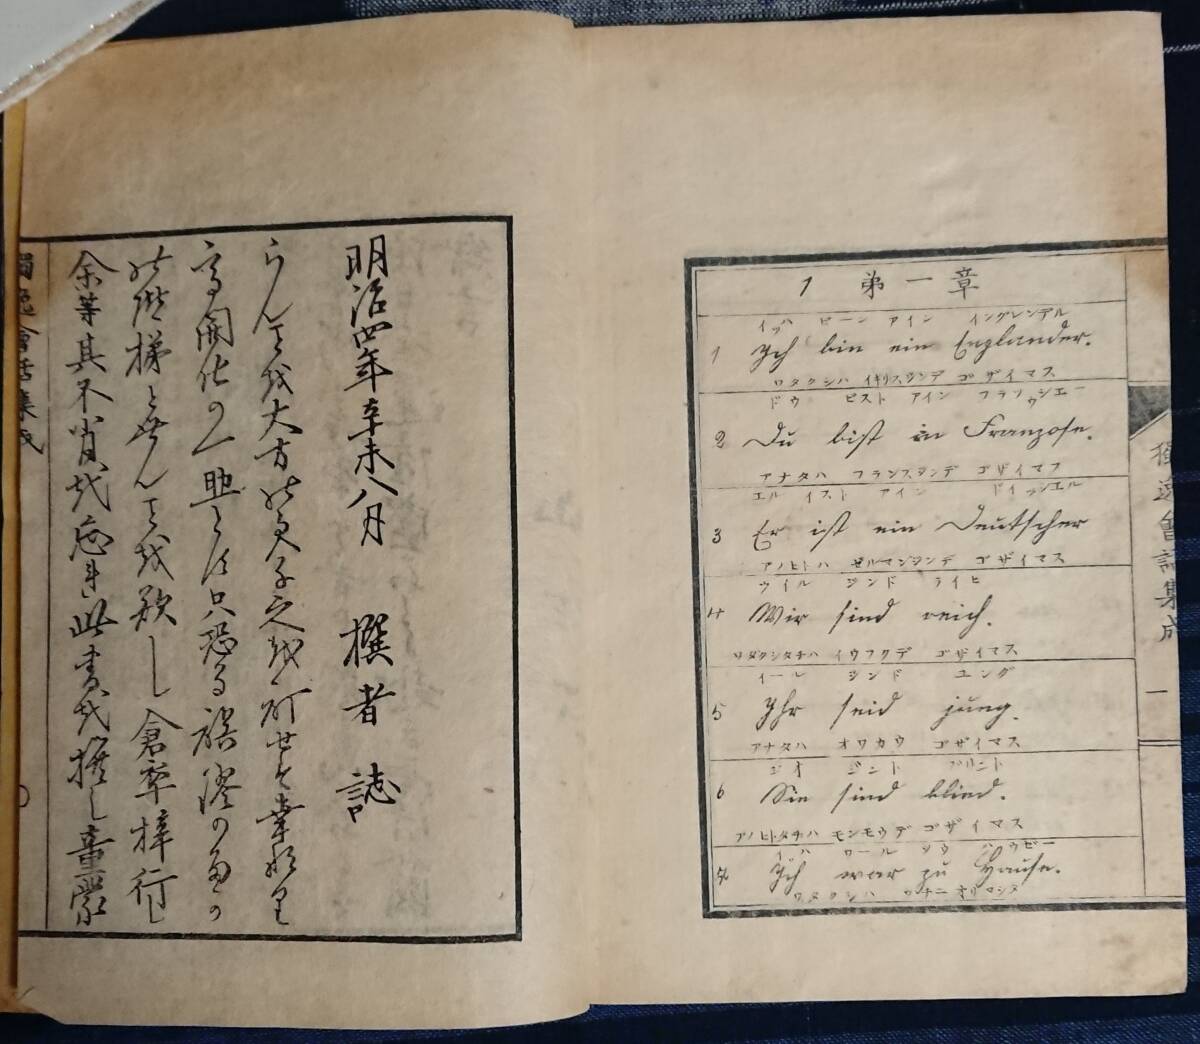 獨逸會話集成
余等其不肖越忘れ此書越撰し童蒙
の階梯と
越欲し倉卒梓行し
開化の一助と
只恐る誤謬の多か
らん
越大方の君子之越訂せ
幸甚
明治四年辛未八月 撰者誌
1 第一章
イッハ ビーン アイン イングレンデル
1 Ich bin ein Englander.
ワタクシハ イギリスジンデ ゴザイマス
ドウ ビスト アイン フランツウシエー
2 Du bist ein Franzose.
アナタハ フランスジンデ ゴザイマス
エル イスト アイン ドイッシエル
3 Er ist ein Deutscher
アノヒトハ ゼルマンジンデ ゴザイマス
ウイル ジンド ライヒ
4 Wir sind reich.
ワタクシタチハ イウフクデ ゴザイマス
イール ジンド ユング
5 Ihr seid jung.
アナタハ オワカウ ゴザイマス
ジオ ジント ブリント
6 Sie sind blind.
アノヒトタチハ モンモウデ ゴザイマス
イッハ ワール ツウ ハウゼー
Ich war zu Hause.
ワタクシハ ウチニ オリマシタ
獨逸會話集成 一